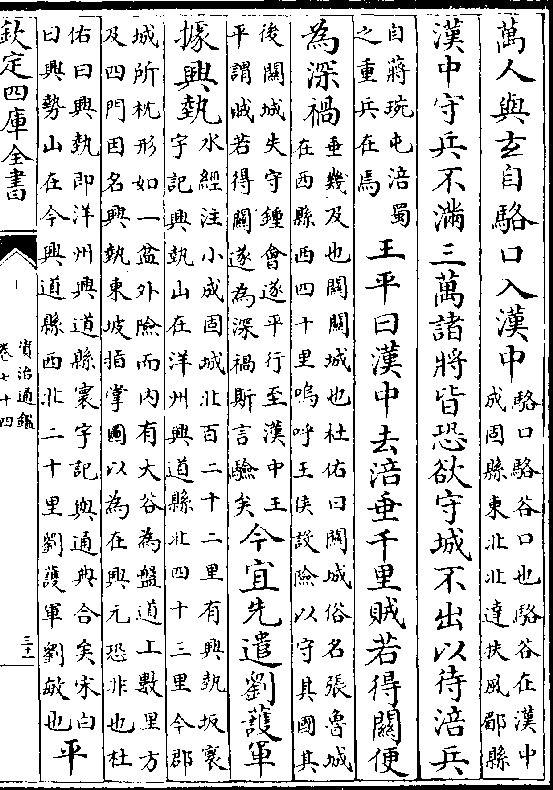 萬人與玄自駱口入漢中駱口駱谷口也駱谷在漢中成固縣東北北達扶風郿縣
漢中守兵不滿三萬諸將皆恐欲守城不出以待涪兵
自蔣琬屯涪蜀之重兵在焉王平曰漢中去涪垂千里賊若得關便
為深禍垂幾及也關關城也杜佑曰關城俗名張魯城在西縣西四十里嗚呼王侯設險以守其國其
後關城失守鍾會遂平行至漢中王平謂賊若得關遂為深禍斯言驗矣今宜先遣劉護軍
據興埶水經注小成固城北百二十二里有興埶坂寰宇記興埶山在洋州興道縣北四十三里今郡
城所枕形如一盆外險而内有大谷為盤道上數里方及四門因名興埶東坡指掌圖以為在興元恐非也杜
佑曰興埶即洋州興道縣寰宇記與通典合矣宋白曰興勢山在今興道縣西北二十里劉護軍劉敏也平
欽定四庫全書
資治通鑑
卷七十四